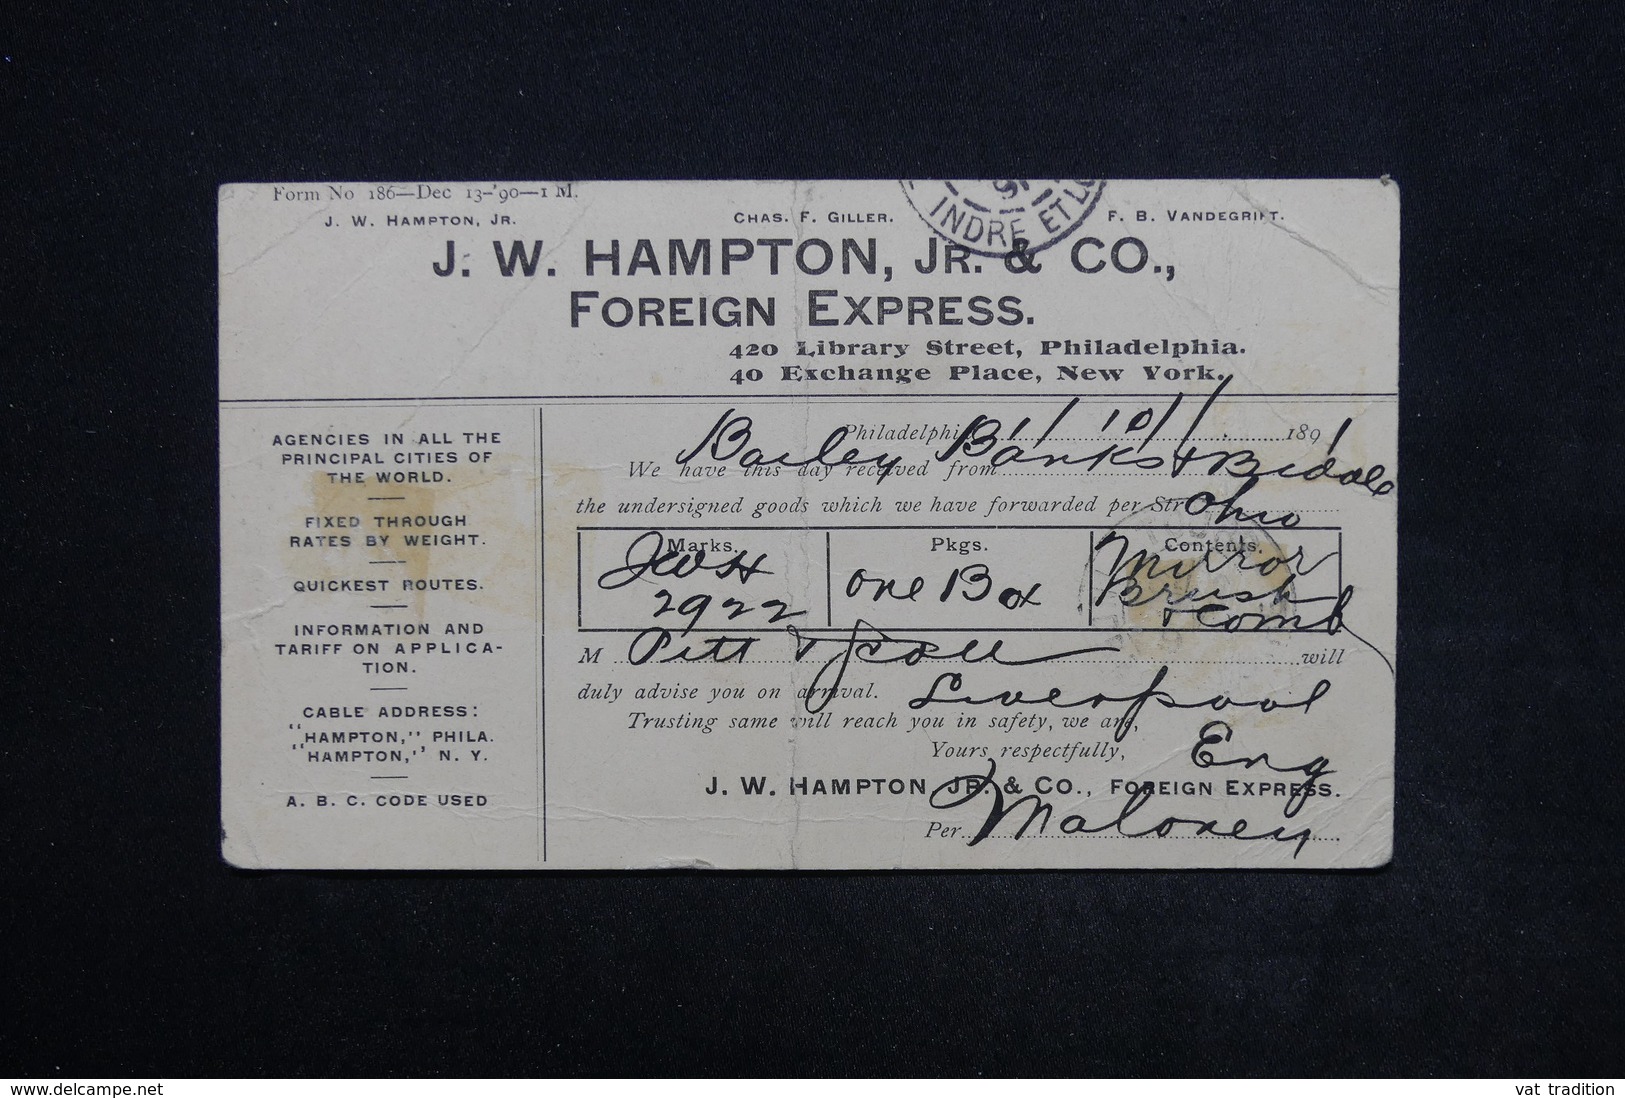 Form No 186—Dec 13-'90—1 M.
J. W. HAMPTON, JR. CHAS. F. GILLER. F. B. VANDEGRIFT.
INDRE ET L
J. W. HAMPTON, JR. & CO.,
FOREIGN EXPRESS.
420 Library Street, Philadelphia.
40 Exchange Place, New York.
AGENCIES IN ALL THE
PRINCIPAL CITIES OF
THE WORLD.
FIXED THROUGH
RATES BY WEIGHT.
QUICKEST ROUTES.
INFORMATION AND
TARIFF ON APPLICA-
TION.
CABLE ADDRESS:
"HAMPTON," PHILA.
"HAMPTON," N. Y.
A. B. C. CODE USED
Philadelphia 1/10/ 1891
We have this day received from Bailey Banks & Biddle
the undersigned goods which we have forwarded per Str Ohio
Marks. Pkgs. Contents.
JWH one Box Mirror
2922 Brush
& Comb
M Pitt & Scott will
duly advise you on arrival. Liverpool
Trusting same will reach you in safety, we are,
Yours respectfully, Eng
J. W. HAMPTON JR. & CO., FOREIGN EXPRESS.
Per Maloney
www.delcampe.net
vat_tradition